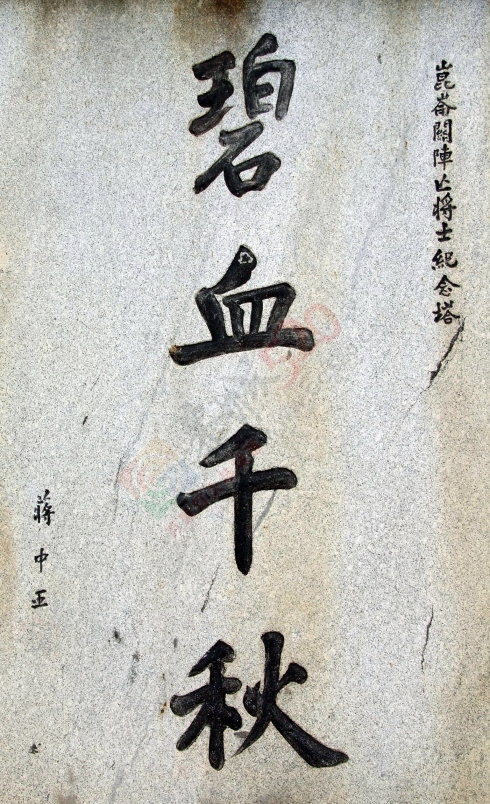 崑崙關陣亡將士紀念塔
碧血千秋
蔣中正